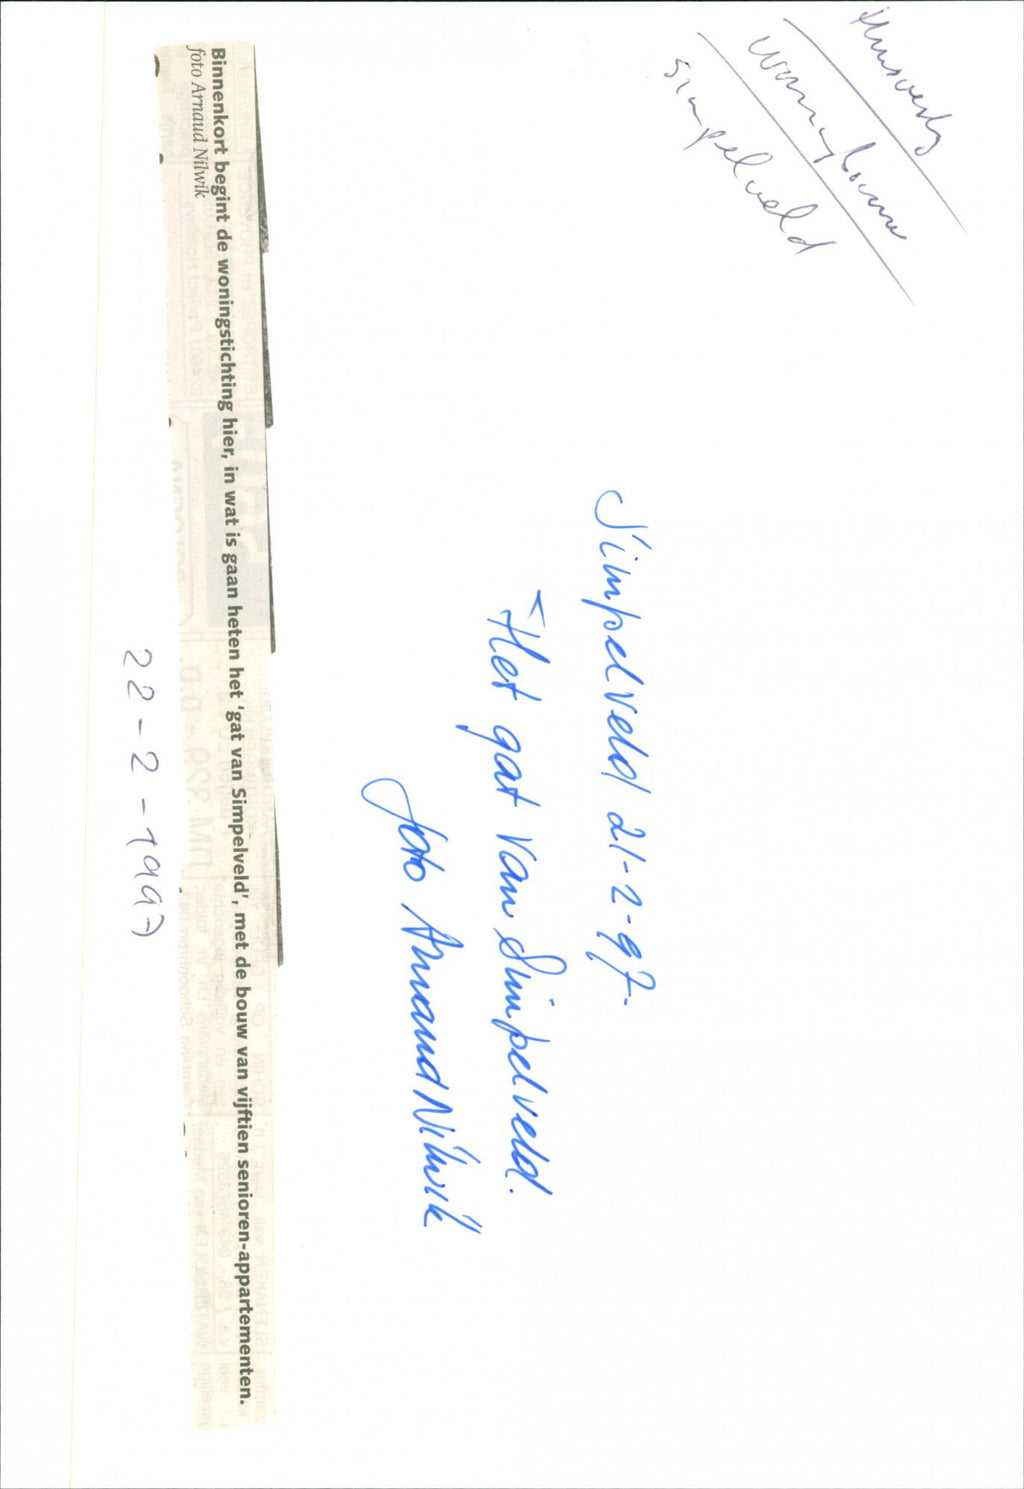 Huisvesting
woningbouw
Simpelveld
Simpelveld 21-2-97.
"Het gat van Simpelveld.
foto Arnaud Nilwik
Binnenkort begint de woningstichting hier, in wat is gaan heten het 'gat van Simpelveld', met de bouw van vijftien senioren-appartementen.
foto Arnaud Nilwik
22-2-1997